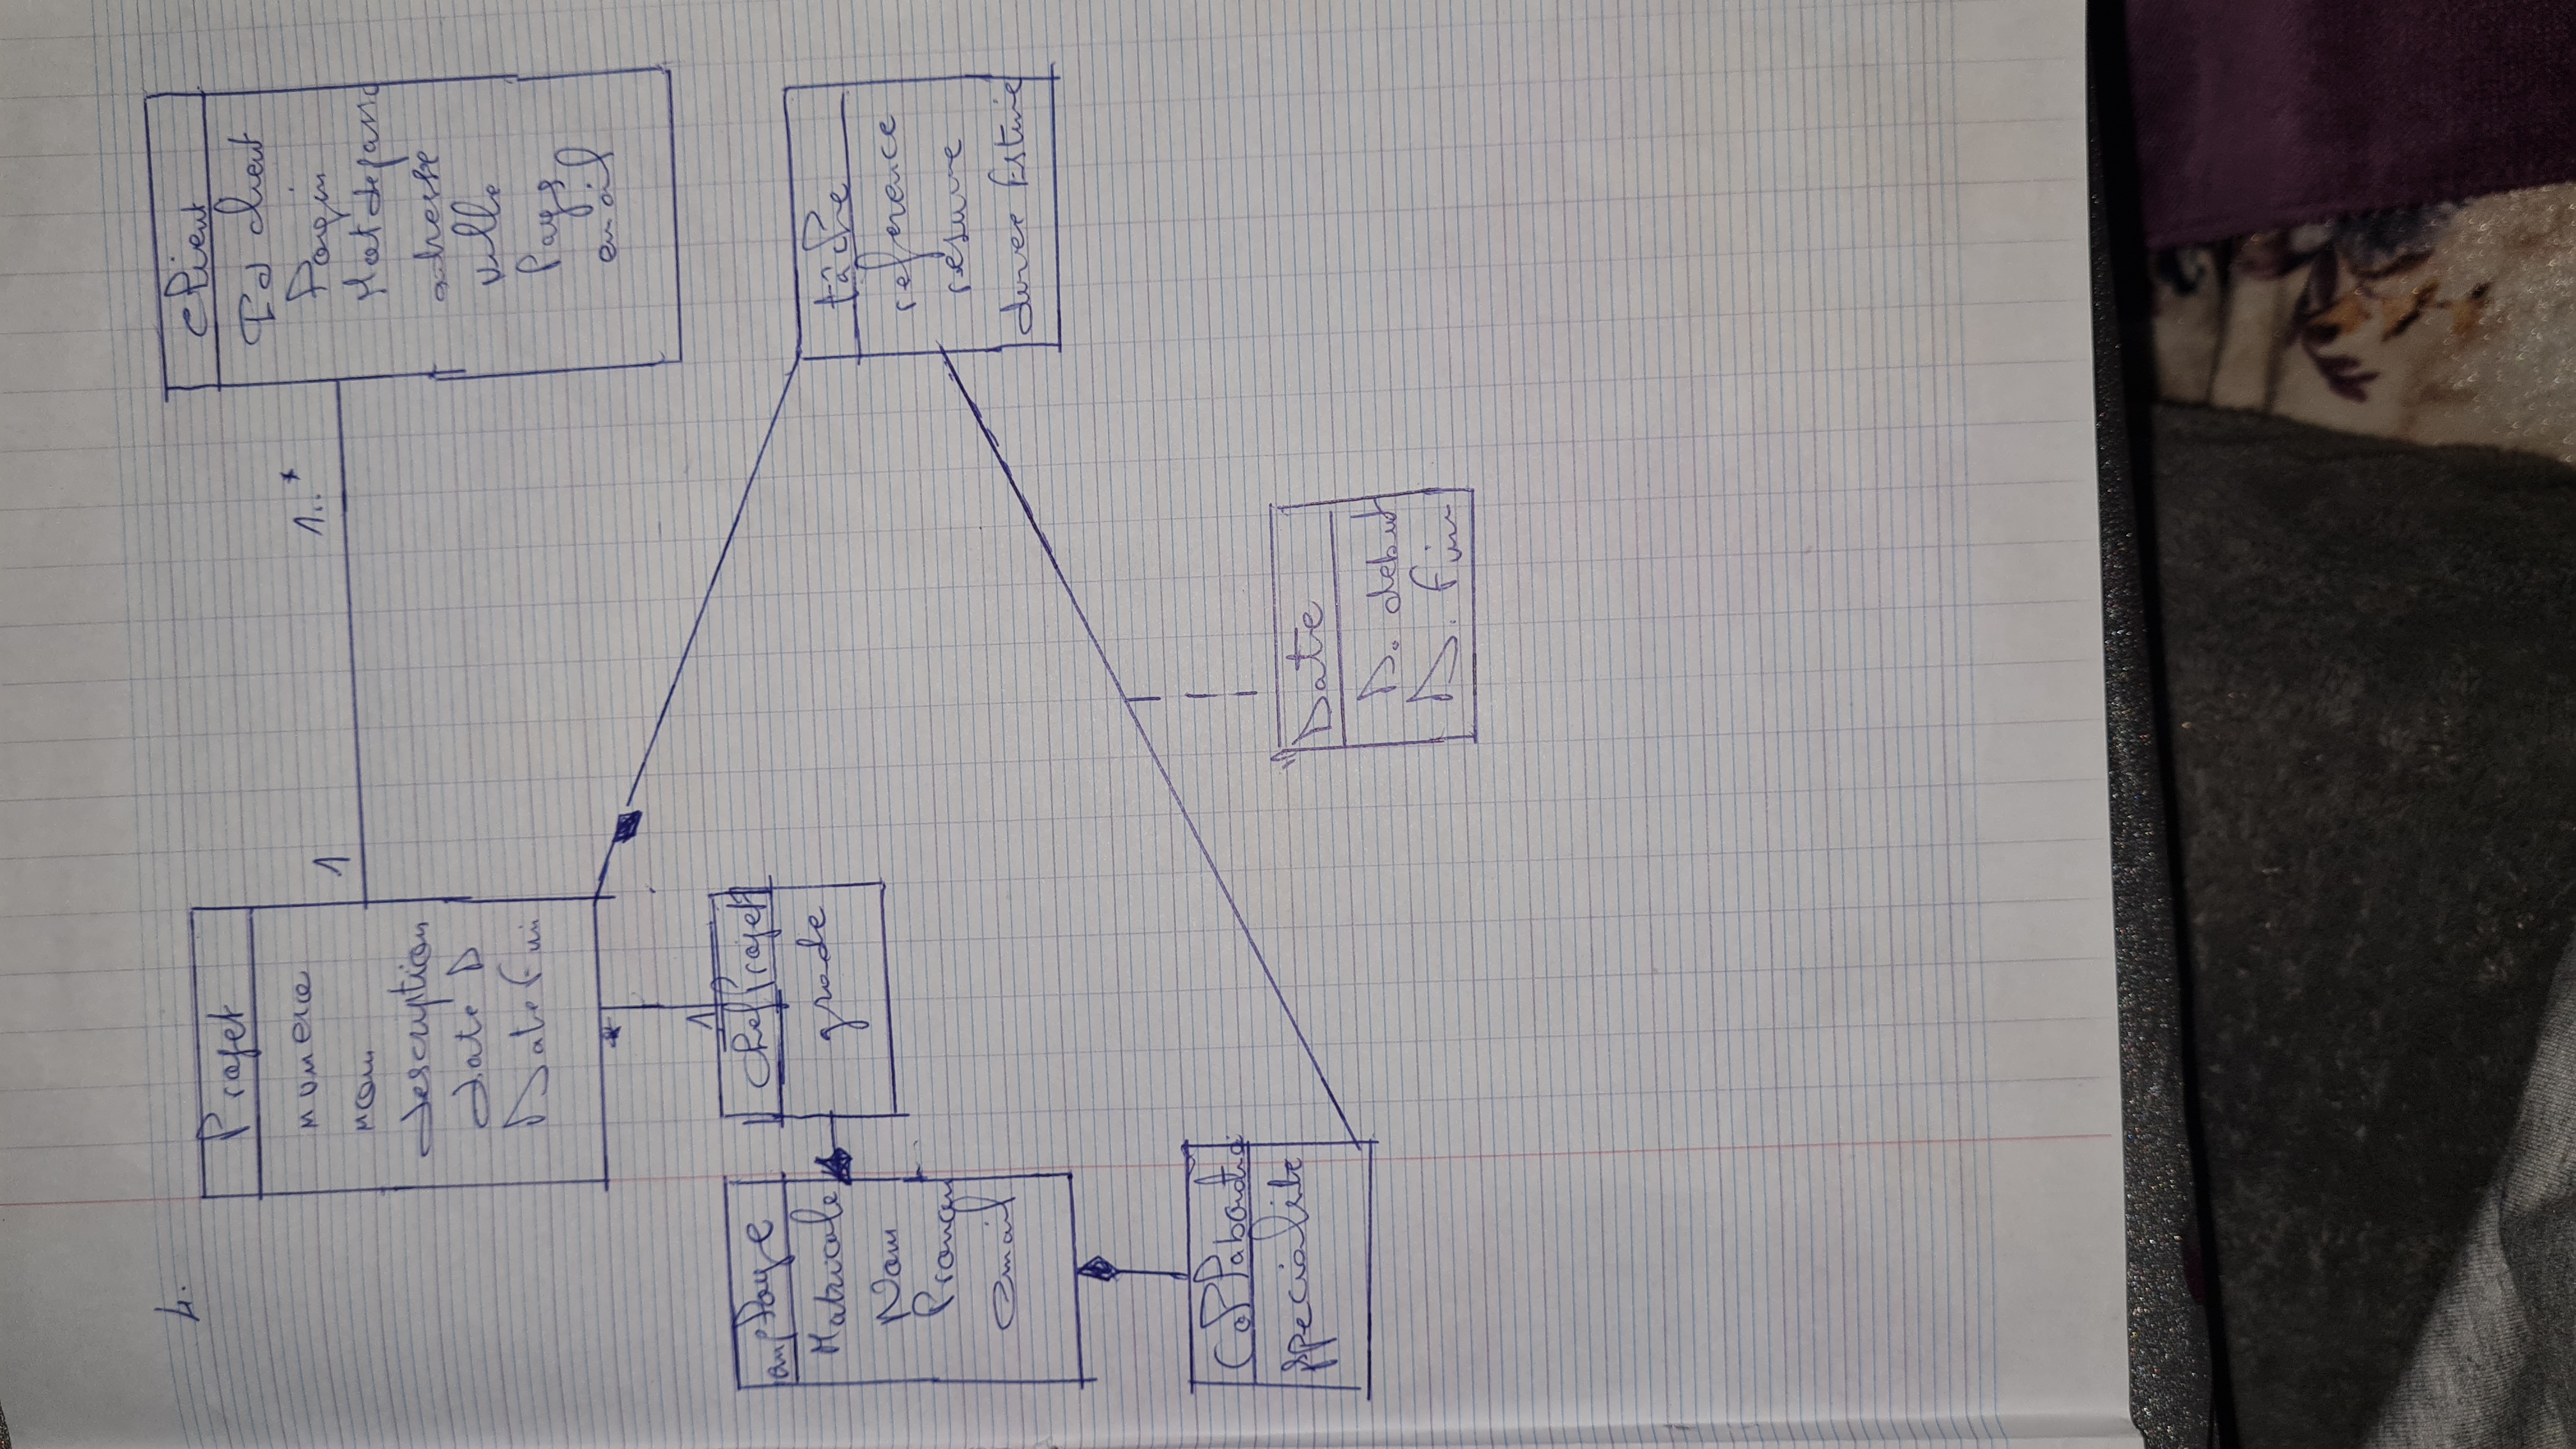 4.
Projet
numero
nom
description
date D
Date Fin
1
1..*
Client
Id client
login
Mot de passe
adresse
ville
Pays
email
*
1
employe
Matricule
Nom
Prenom
email
Chef Projet
grade
tâche
reference
resume
duree Estime
Collaborateur
specialite
Date
D. debut
D. Fin